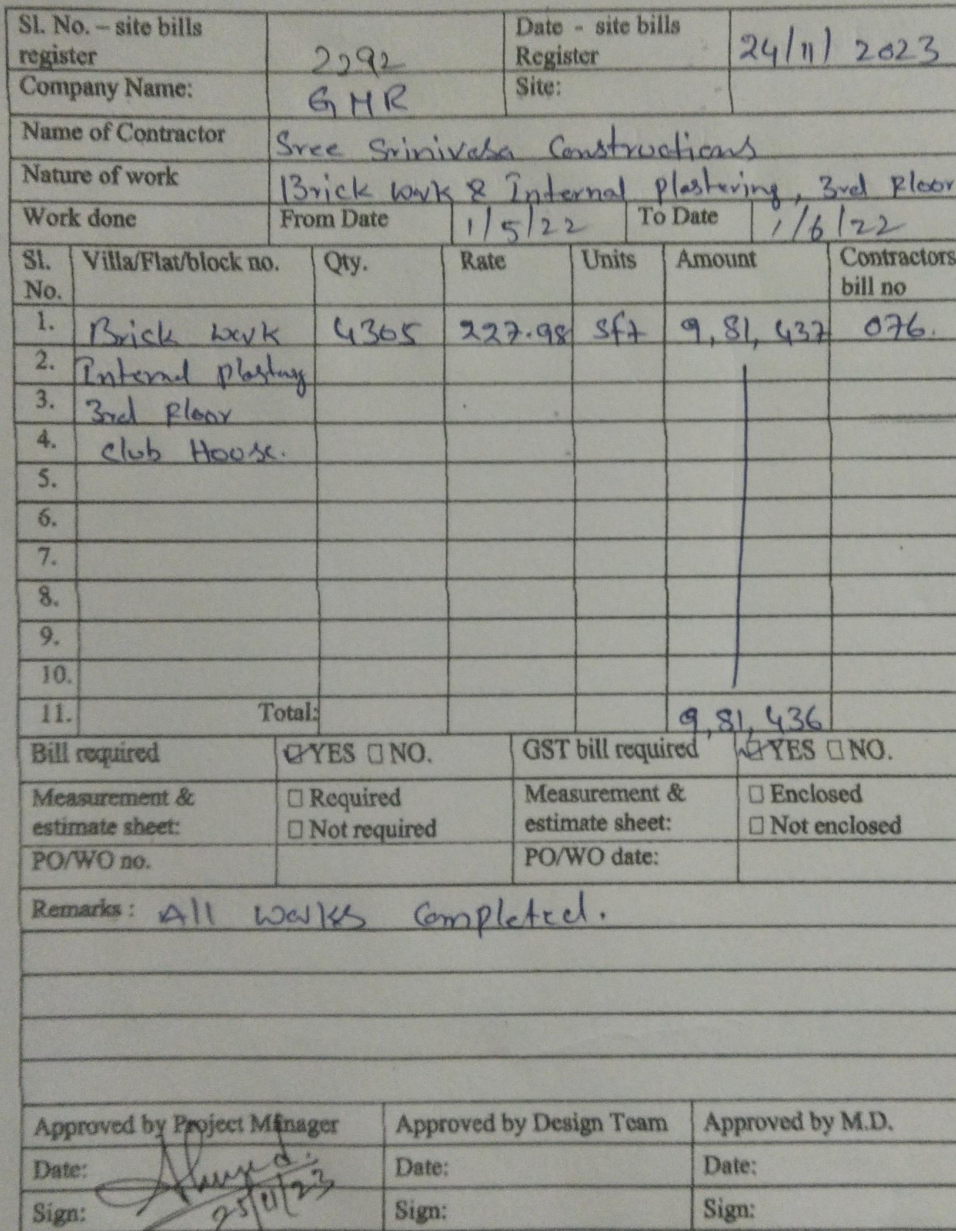 Sl. No. – site bills register 2292 Date - site bills Register 24/11/2023
Company Name: GMR Site:
Name of Contractor Sree Srinivasa Constructions
Nature of work Brick work & Internal plastering, 3rd Floor
Work done From Date 1/5/22 To Date 1/6/22
Sl. No. Villa/Flat/block no. Qty. Rate Units Amount Contractors bill no
1. Brick work 4305 227.98 sft 9,81,437 076.
2. Internal plastering
3. 3rd Floor
4. Club House.
5.
6.
7.
8.
9.
10.
11. Total: 9,81,436
Bill required ☑YES ☐NO. GST bill required ☑YES ☐NO.
Measurement & estimate sheet: ☐ Required ☐ Not required Measurement & estimate sheet: ☐ Enclosed ☐ Not enclosed
PO/WO no. PO/WO date:
Remarks : All works Completed.
Approved by Project Manager Approved by Design Team Approved by M.D.
Date: Date: Date:
Sign: 25/11/23 Sign: Sign: